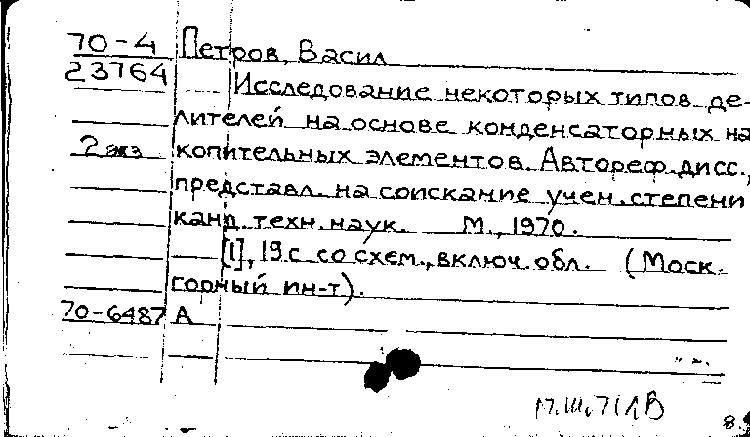 70-4 Петров, Васил
23764
Исследование некоторых типов де-
лителей на основе конденсаторных на
2 экз копительных элементов. Автореф. дисс.,
представл. на соискание учен. степени
канд. техн. наук. М., 1970.
[1], 19 с. со схем., включ. обл. (Моск.
горный ин-т).
70-6487 А